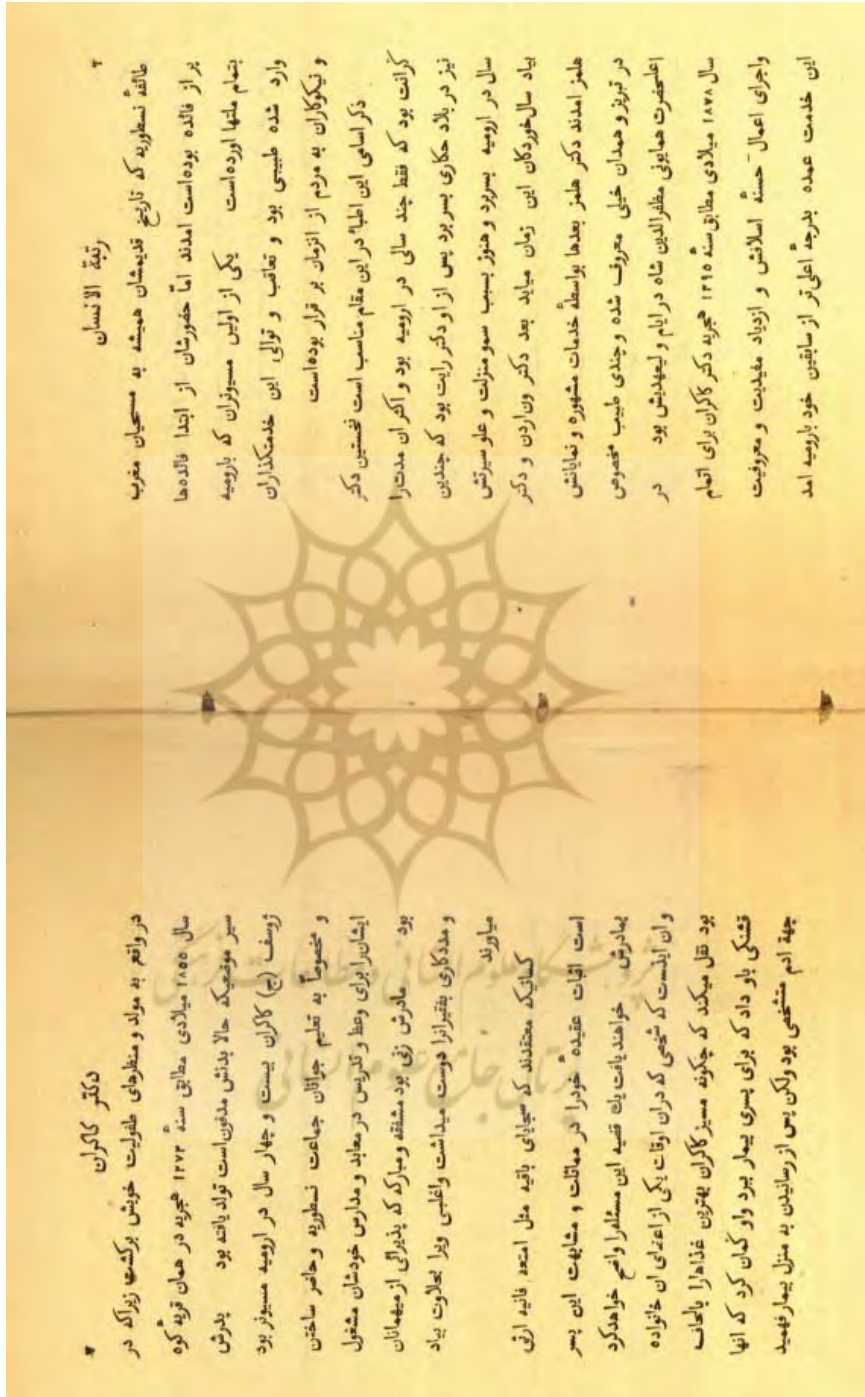 ۲
رتبة الانسان
طائفهٔ نسطوریه که تاریخ قدیمشان همیشه به مسیحیان مغرب
پر از فائده بوده‌است امدند امّا حضورشان از ابتدا فائده‌ها
بتمام ملتها اورده‌است یکی از اولین مسیونران که بارومیه
وارد شده طبیبی بود و تعاقب و توالی این خدمتکذاران
و نیکوکاران به مردم از انزمان بر قرار بوده‌است
ذکر اسامی این اطبا در این مقام مناسب است نخستین دکتر
گرانت بود که فقط چند سالی در ارومیه بود و اکثر ان مدت‌را
نیز در بلاد حکاری بسر برد پس از او دکتر رایت بود که چندین
سال در ارومیه بسربرد و هنوز بسبب سمو منزلت و علو سیرتش
بیاد سال‌خوردکان این زمان میاید بعد دکتر ون‌اردن و دکتر
هلمز امدند دکتر هلمز بعدها بواسطهٔ خدمات مشهوره و نمایانش
در تبریز و همدان خیلی معروف شده و چندی طبیب مخصوص
اعلیحضرت همایونی مظفرالدین شاه در ایام ولیعهدیش بود در
سال ۱۸۷۸ میلادی مطابق سنهٔ ۱۲۹۵ هجریه دکتر کاکران برای اتمام
واجرای اعمال حسنهٔ اسلافش و ازدیاد مفیدیت و معروفیت
این خدمت عمده بدرجهٔ اعلی‌تر از سابقین خود بارومیه امد
دکتر کاکران
در واقع به مولد و منظرهای طفولیت خویش برکشت زیراکه در
سال ۱۸۵۵ میلادی مطابق سنه ۱۲۷۲ هجریه در همان قریهٔ کوه
سیر موضعیکه حالا بدنش مدفون‌است تولد یافته بود پدرش
ژوسف (ج) کاکران بیست و چهار سال در ارومیه مسیونر بود
و مخصوصاً به تعلیم جوانان جماعت نسطوریه و حاضر ساختن
ایشان‌را برای وعظ و تدریس در معابد و مدارس خودشان مشغول
بود مادرش زنی بود مشفقه و مبارکه که پذیرائی از میهمانان
و مددکاری بفقیران‌را دوست میداشت واغلبی ویرا بحلاوت بیاد
میاورند
کسانیکه معتقدند که سجایای باقیه مثل امتعه فانیه ارثی
است اثبات عقیدهٔ خودرا در مماثلت و مشابهت این پسر
بمادرش خواهند یافت یك قضیه این مسئله‌را واضح خواهدکرد
و ان اینست که شخصی که دران اوقات یکی از اعضای ان خانواده
بود نقل میکند که چکونه مسیز کاکران بهترین غذاهارا بالحاف
قشنکی باو داد که برای پسری بیمار ببرد واو کمان کرد که انها
جههٔ ادم متشخصی بود ولکن پس از رسانیدن به منزل بیمار فهمید